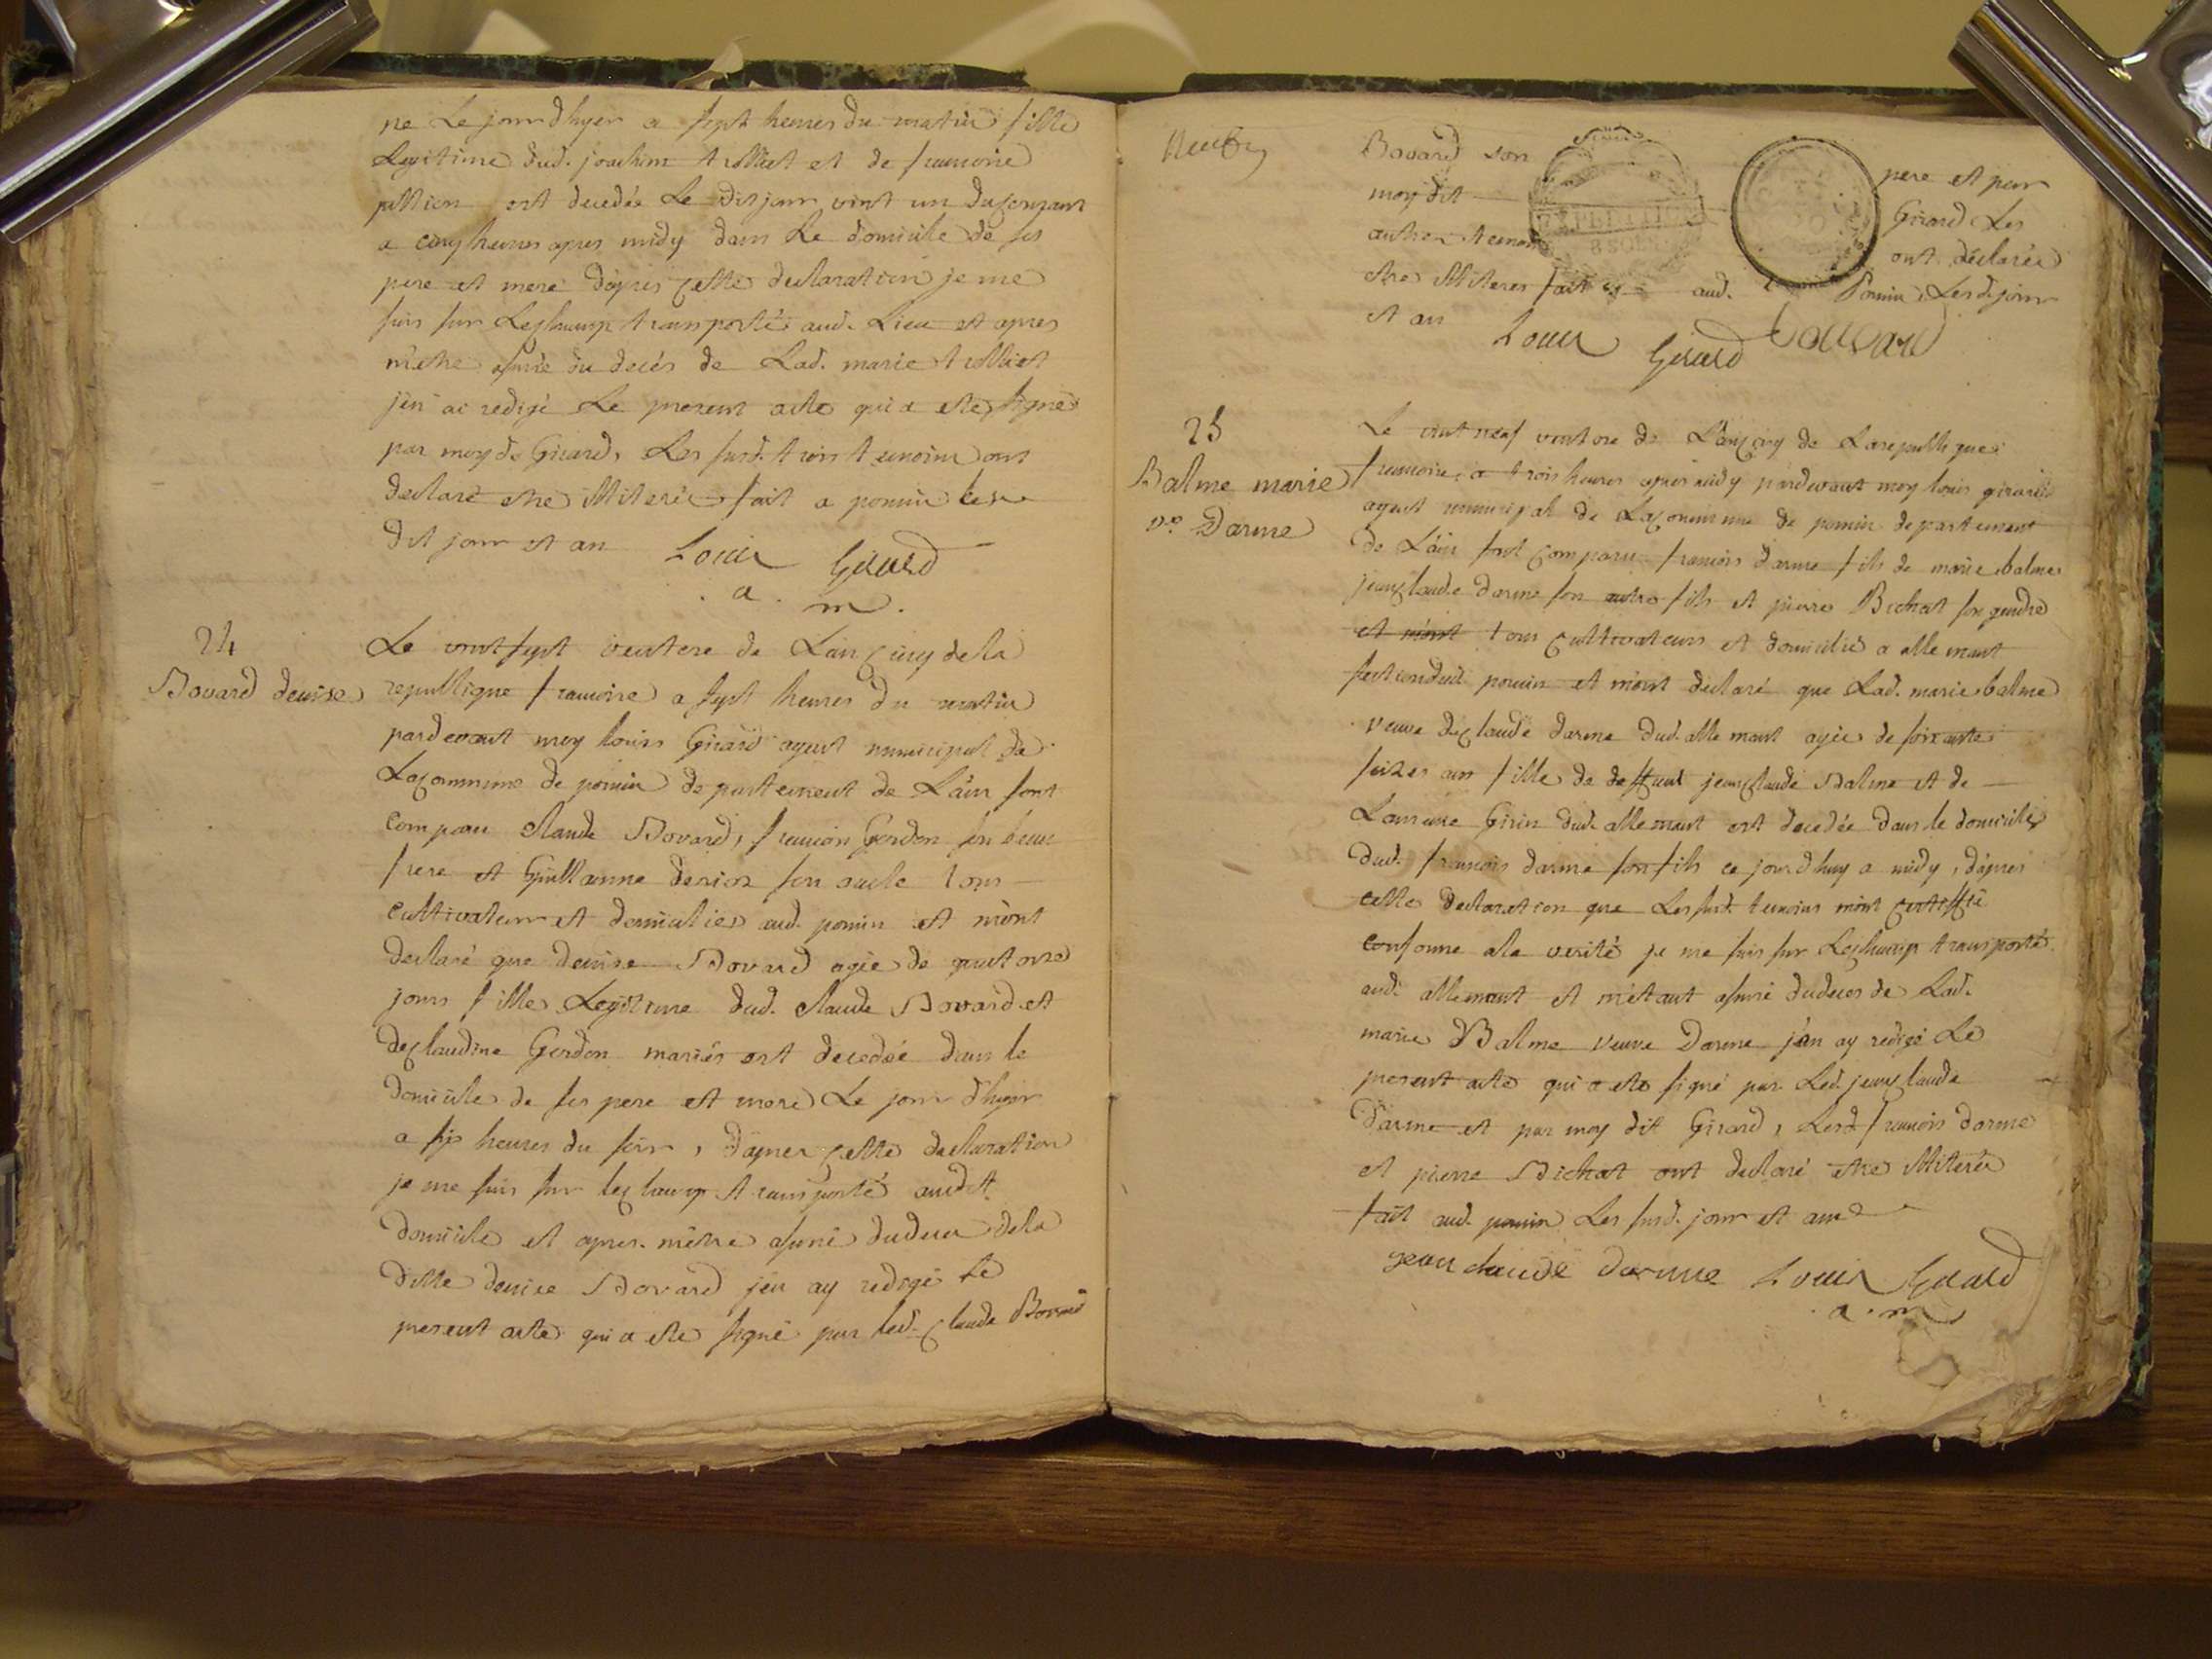 ne Le jour dhyer a sept heures du matin fille
Legitime dud. joachim trolliet et de francoise
est decedée Le dit jour vint un du courant
a cinq heures apres midy dans Le domicile de ses
pere et mere d'apres cette declaration je me
suis sur Lechamp transporté aud. Lieu et apres
m'etre assuré du decés de Lad. marie trolliet
j'en ai redigé Le present acte qui a ete signé
par moy d. Girard, Les susd. trois temoins ont
declaré etre illiterés fait a poncin les
dit jour et an Louis Girard
a. m.
24
Bovard denise
Le vint sept ventose de L'an cinq de la
republique francoise a sept heures du matin
pardevant moy Louis Girard agent municipal de
La commune de poncin departement de L'ain sont
comparu Claude Bovard, francois Gerdon son beau
frere et Guillaume son oncle tous
cultivateurs et domiciliés aud. poncin et m'ont
declaré que denise Bovard agée de quatorze
jours fille Legitime dud. Claude Bovard et
de claudine Gerdon mariés est decedée dans le
domicile de ses pere et mere Le jour d'hyer
a six heures du soir, d'apres cette declaration
je me suis sur lechamp transporté audit
domicile et apres m'etre assuré du deces de la
ditte denise Bovard j'en ay redigé le
present acte qui a ete signé par led. Claude Bovard
Bovard son pere et par
moy dit Girard Les
autres temoins ont déclarés
etre illiteres fait aud. Poncin, Lesd. jour
et an
Louis Girard Bovard
25
Balme marie
v.e Darme
Le vint neuf ventose de L'an cinq de La republique
francoise, a trois heures apres midy pardevant moy louis girard
agent municipal de La commune de poncin departement
de L'ain sont comparu francois darme fils de marie balme
jean claude darme son autre fils et pierre Bichat son gendre
et m'ont tous cultivateurs et domiciliés a allemant
section dud. poncin et m'ont declaré que Lad. marie balme
veuve de claude darme dud. allemant agée de soixante
seize ans fille de deffunt jean claude Balme et de
Laurence Girin dud. allemant est decedée dans le domicile
dud. francois darme son fils ce jourdhuy a midy, d'apres
cette declaration que Les susd. temoins m'ont certiffié
conforme a la verité je me suis sur Lechamp transporté
aud. allemant et m'etant assuré du deces de Lad.
marie Balme veuve Darme j'en ay redigé Le
present acte qui a ete signé par Led. jean claude
Darme et par moy dit Girard, Lesd. francois darme
et pierre Bichat ont declaré etre illiterés
fait aud. poncin Les susd. jour et an
jean claude darme Louis Girard
a. m.